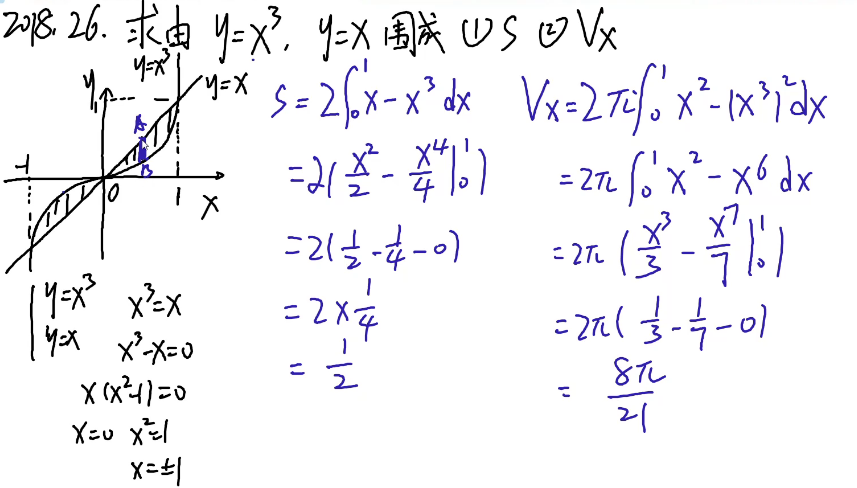 2018.26. 求由 y=x³, y=x 围成 ① S ② Vx
y=x³
y=x
y
1
A
B
-1
0
1
x
{ y=x³
y=x
x³=x
x³-x=0
x(x²-1)=0
x=0 x²=1
x=±1
S=2∫₀¹x-x³dx
=2(x²/2-x⁴/4|₀¹)
=2(1/2-1/4-0)
=2×1/4
=1/2
Vx=2π∫₀¹x²-(x³)²dx
=2π∫₀¹x²-x⁶dx
=2π(x³/3-x⁷/7|₀¹)
=2π(1/3-1/7-0)
=8π/21